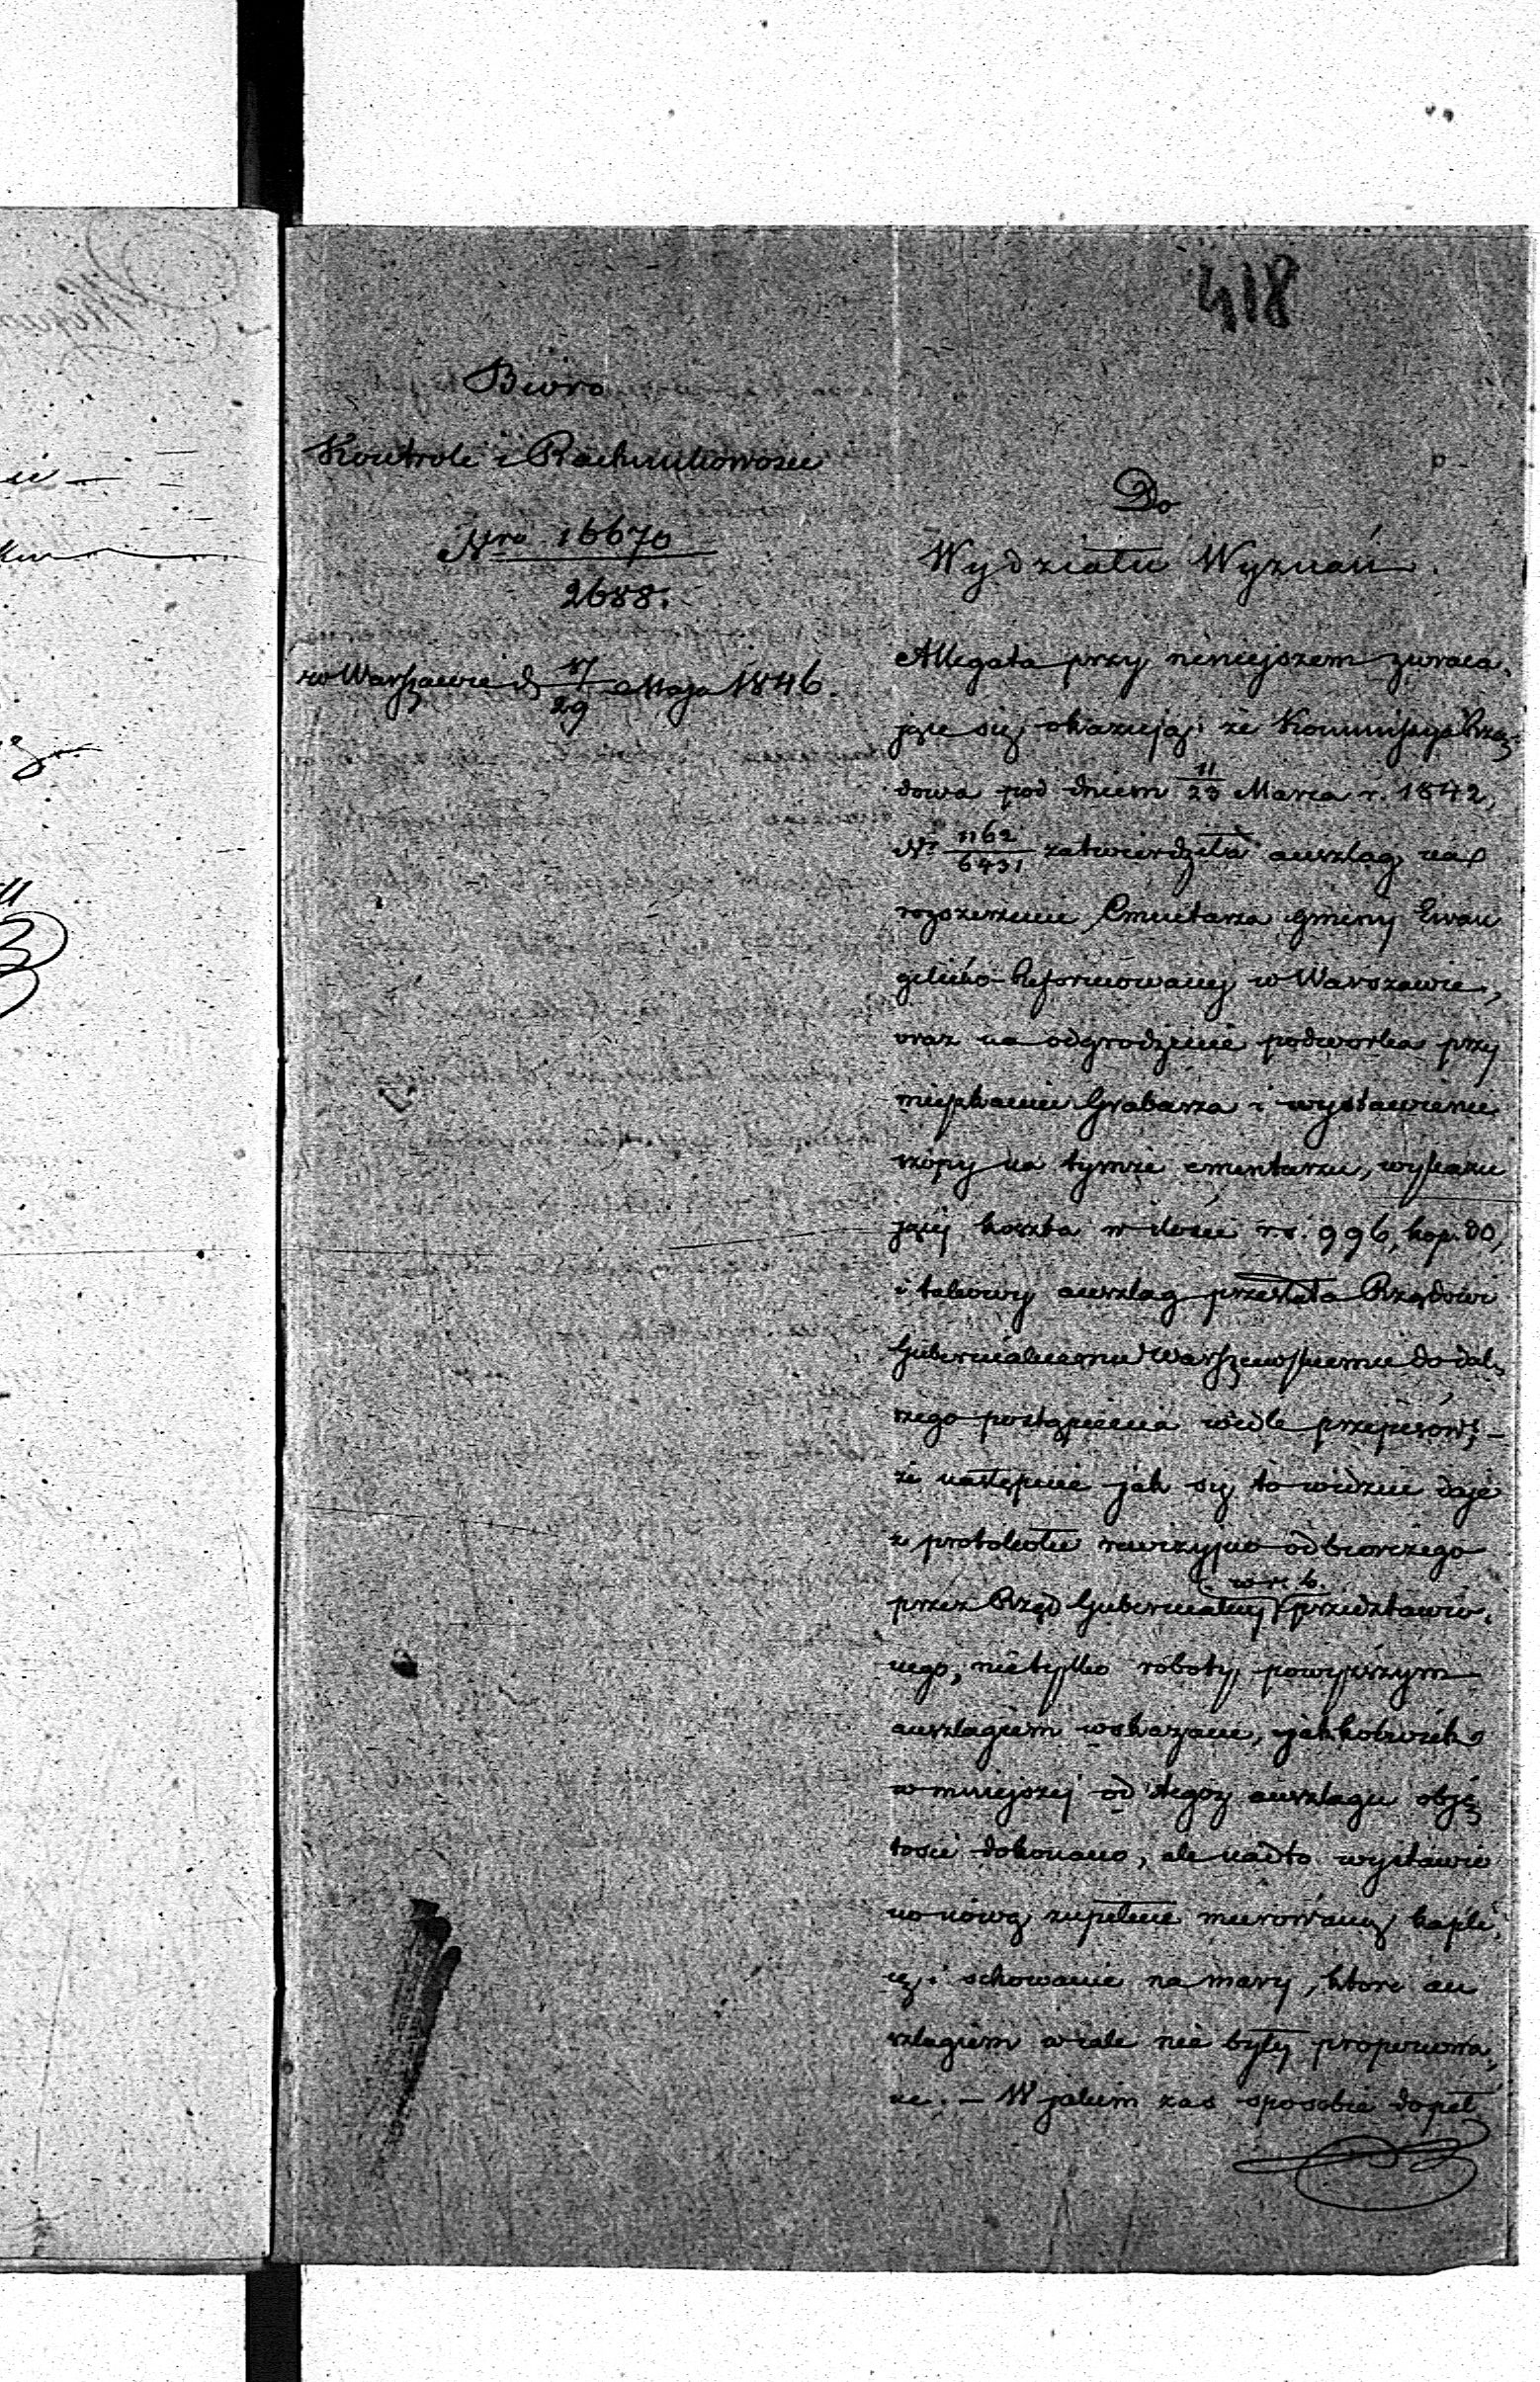 418
Biuro
Kontroli i Rachunkowości
Nro 16670
2688.
w Warszawie d 17/29 Maja 1846.
Do
Wydziału Wyznań.
Allegata przy niniejszem zwraca,
jące się okazują: że Kommissya Rzą,
dowa pod dniem 11/23 Marca r. 1842,
Nr 1162/6431 zatwierdziła anszlag na
rozszerzenie Cmentarza gminy Ewan
gelicko-Reformowanej w Warszawie,
oraz na odgrodzenie podworka przy
mieszkaniu Grabarza i wystawienie
szopy na tymże cmentarzu, wykazu
jący koszta w ilości r.s. 996, kop. 80,
i takowy anszlag przesłała Rządowi
Gubernialnemu Warszawskiemu do dal,
szego postąpienia wedle przepisów; –
że następnie jak się to widzieć daje
z protokołu rewizyjno-odbiorczego
przez Rząd Gubernialny w r. b. przedstawio,
nego, nietylko roboty powyższym
anszlagiem wskazane, jakkolwiek
w mniejszej od tegoż anszlagu obję
tości dokonano, ale nadto wystawio
no nową zupełnie murowaną kapli,
cę i schowanie na mary, które an
szlagiem wcale nie były proponowa,
ne. – W jakim zaś sposobie dopeł